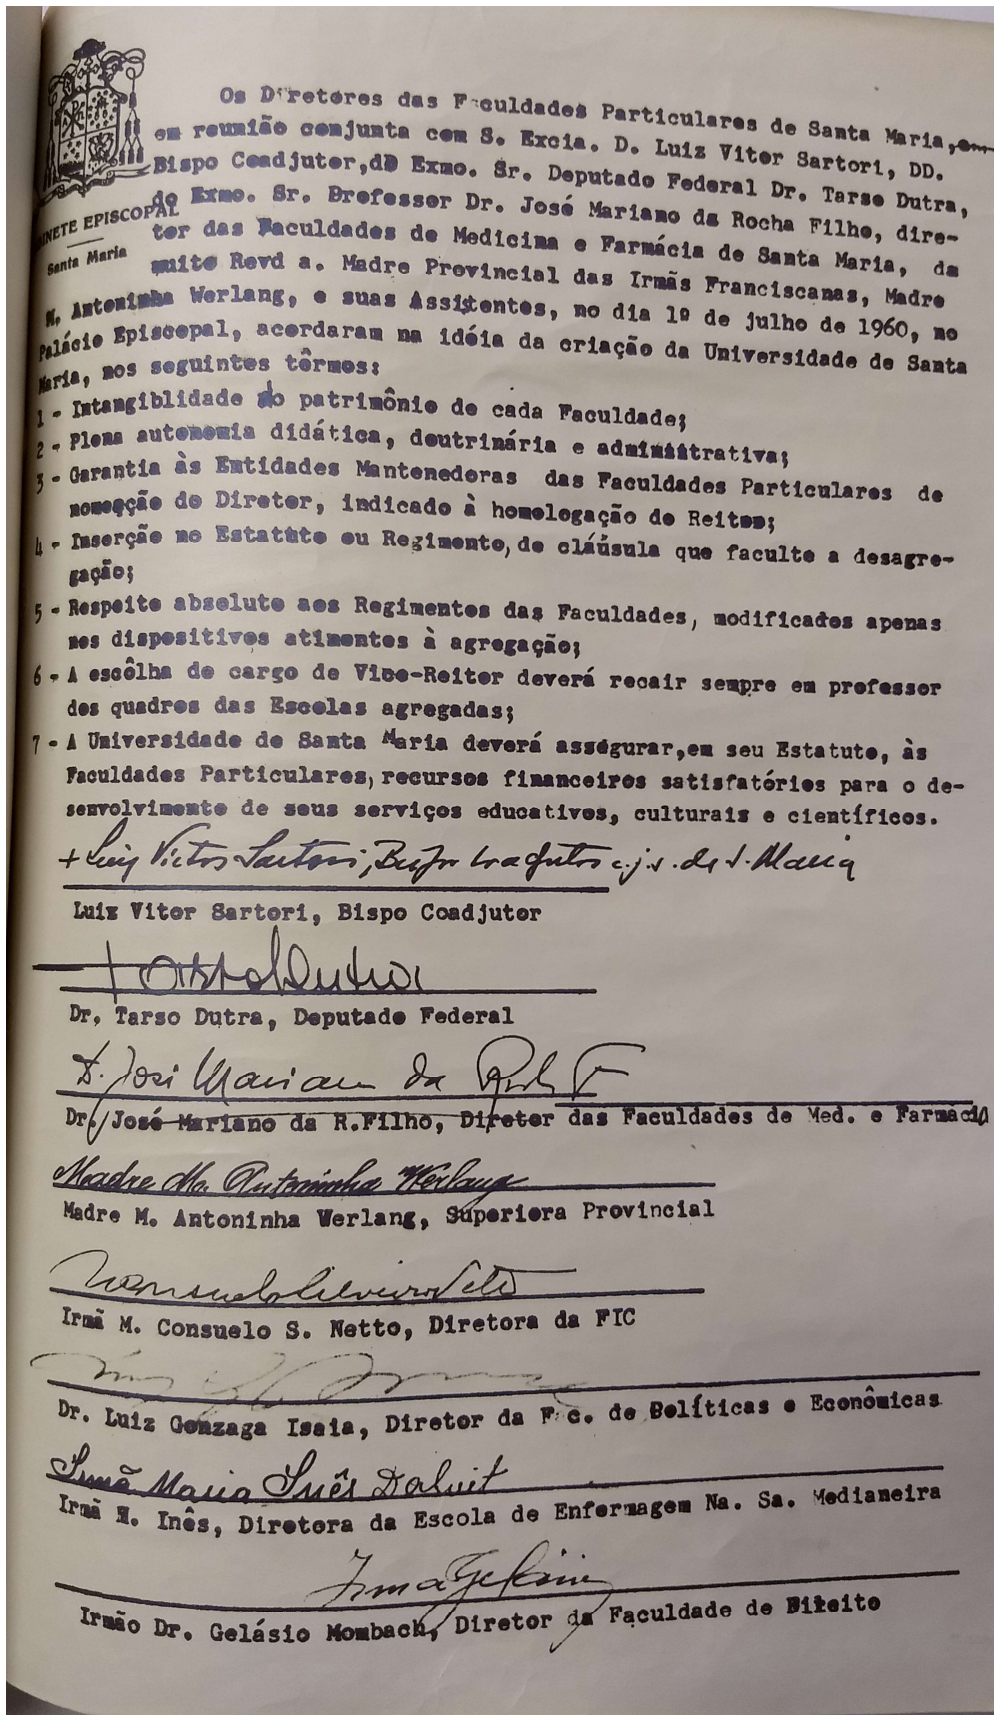 Os Diretores das Faculdades Particulares de Santa Maria, em
em reunião conjunta com S. Excia. D. Luiz Vitor Sartori, DD.
Bispo Coadjutor, do Exmo. Sr. Deputado Federal Dr. Tarso Dutra,
do Exmo. Sr. Brofessor Dr. José Mariano da Rocha Filho, dire-
GABINETE EPISCOPAL
tor das Faculdades de Medicina e Farmácia de Santa Maria, da
Santa Maria
muito Revd a. Madre Provincial das Irmãs Franciscanas, Madre
M. Antoninha Werlang, e suas Assistentes, no dia 1º de julho de 1960, no
Palácio Episcopal, acordaram na idéia da criação da Universidade de Santa
Maria, nos seguintes têrmos:
1 - Intangiblidade do patrimônio de cada Faculdade;
2 - Plena autonomia didática, doutrinária e administrativa;
3 - Garantia às Entidades Mantenedoras das Faculdades Particulares de
nomeação do Diretor, indicado à homologação do Reitor;
4 - Inserção no Estatuto ou Regimento, de cláusula que faculte a desagre-
gação;
5 - Respeito absoluto aos Regimentos das Faculdades, modificados apenas
nos dispositivos atinentes à agregação;
6 - A escôlha de cargo de Vice-Reitor deverá recair sempre em professor
dos quadros das Escolas agregadas;
7 - A Universidade de Santa Maria deverá assegurar, em seu Estatuto, às
Faculdades Particulares, recursos financeiros satisfatórios para o de-
senvolvimento de seus serviços educativos, culturais e científicos.
+ Luiz Victor Sartori, Bispo Coadjutor c.j.s. de S. Maria
Luiz Vitor Sartori, Bispo Coadjutor
Tarso Dutra
Dr. Tarso Dutra, Deputado Federal
D. José Mariano da Rocha F
Dr. José Mariano da R.Filho, Diretor das Faculdades de Med. e Farmácia
Madre M. Antoninha Werlang
Madre M. Antoninha Werlang, Superiora Provincial
Irmã M. Consuelo S. Netto, Diretora da FIC
Dr. Luiz Gonzaga Isaia, Diretor da Fac. de Bolíticas e Econômicas
Irmã Maria Inês Dalvit
Irmã M. Inês, Diretora da Escola de Enfermagem Na. Sa. Medianeira
Irmão Dr. Gelásio Mombach, Diretor da Faculdade de Direito